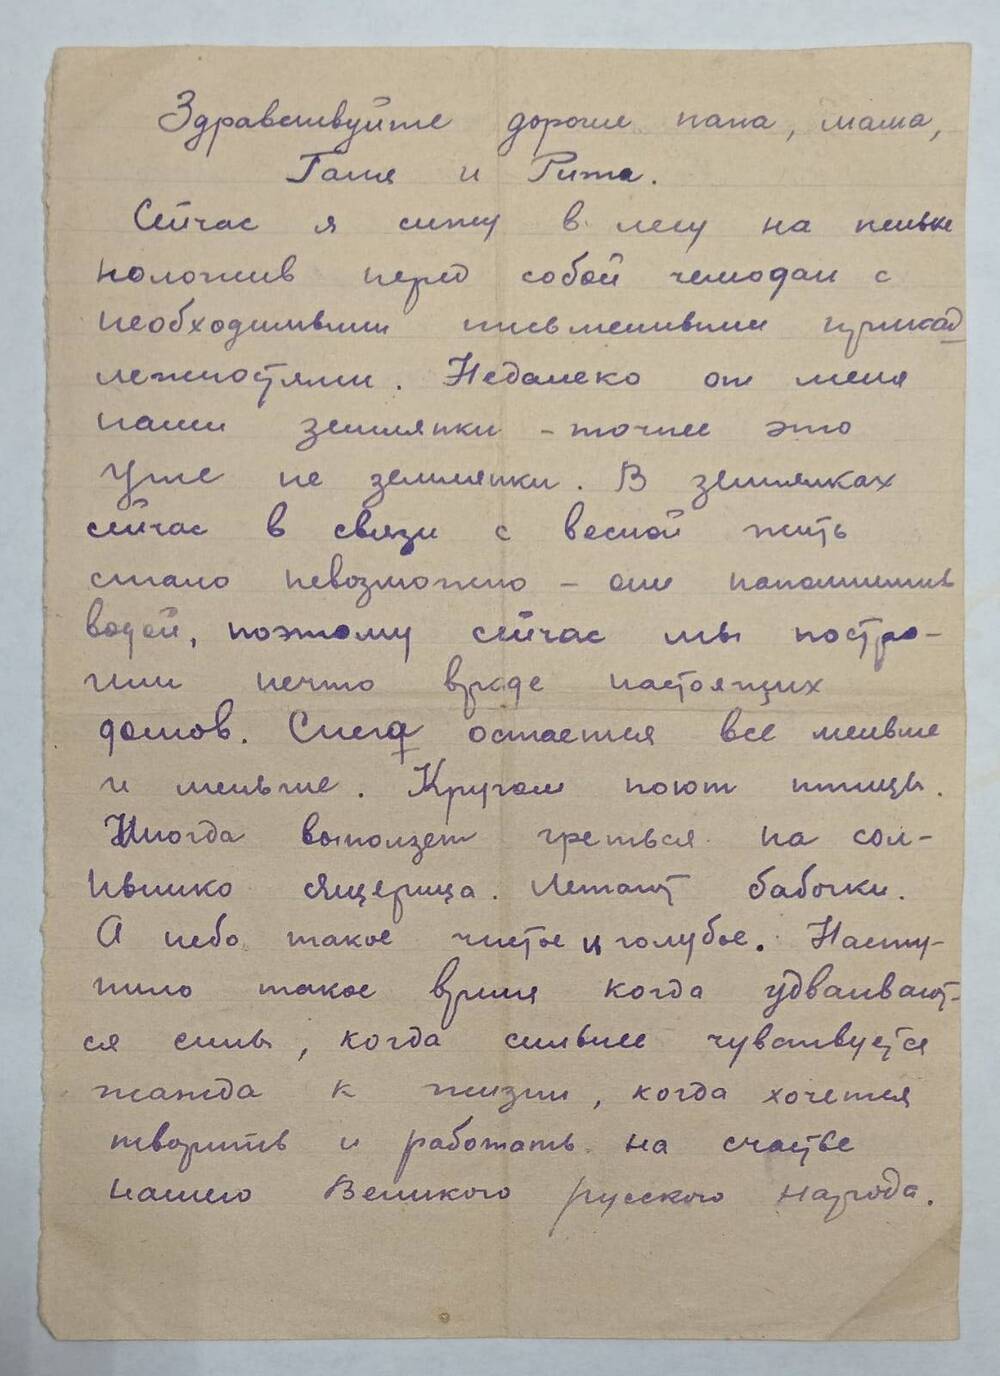 Здравствуйте дорогие папа, мама,
Галя и Рита.
Сейчас я сижу в лесу на пеньке
положив перед собой чемодан с
необходимыми письменными принад
лежностями. Недалеко от меня
наши землянки - точнее это
уже не землянки. В землянках
сейчас в связи с весной жить
стало невозможно - они наполнились
водой, поэтому сейчас мы постро-
или нечто вроде настоящих
домов. Снега остается всё меньше
и меньше. Кругом поют птицы.
Иногда выползет греться на сол-
нышко ящерица. Летают бабочки.
А небо такое чистое и голубое. Насту-
пило такое время когда удваивают-
ся силы, когда сильнее чувствуется
жажда к жизни, когда хочется
творить и работать на счастье
нашего Великого русского народа.